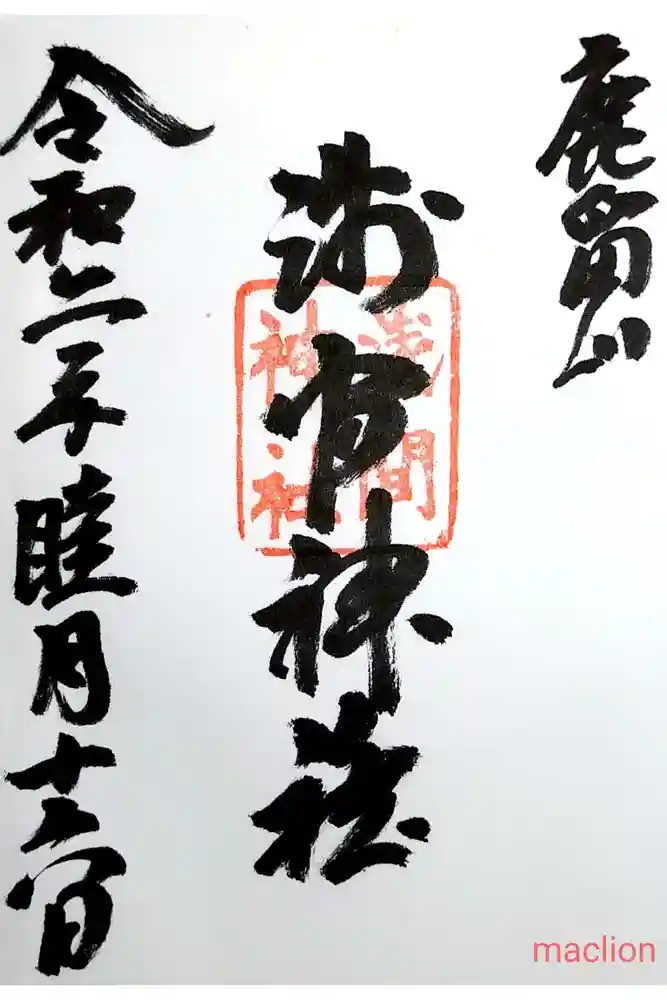 鹿留山
浅間神社
浅間
神社
令和二年睦月十二日
maclion